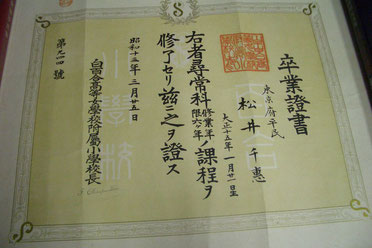 卒業證書
東京府平民
松井千惠
大正十五年一月廿一日生
右者尋常科修業年限六ケ年ノ課程ヲ
修了セリ茲ニ之ヲ證ス
昭和十三年三月廿五日
白百合高等女學校附屬小學校長
第九一四號